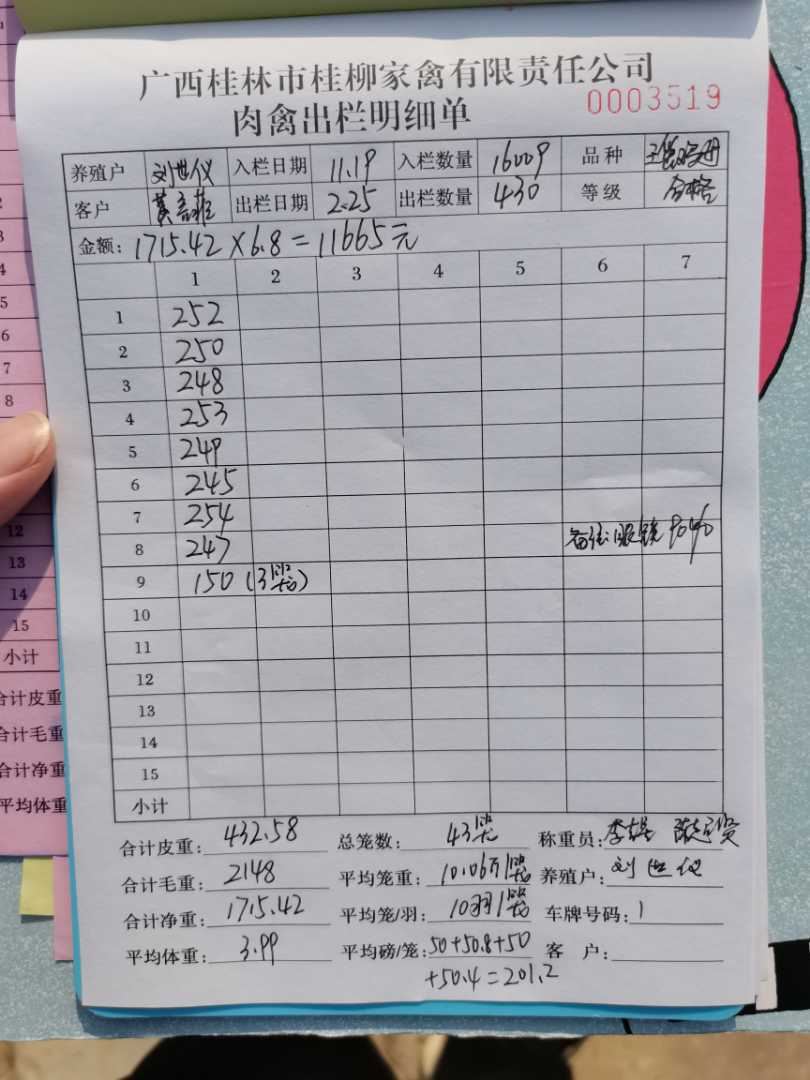 广西桂林市桂柳家禽有限责任公司
肉禽出栏明细单 0003519
养殖户 刘世仪 入栏日期 11.19 入栏数量 16009 品种
客户 出栏日期 2.25 出栏数量 430 等级 合格
金额: 1715.42×6.8=11665元
1 2 3 4 5 6 7
1 252
2 250
3 248
4 253
5 249
6 245
7 254
8 247 备注:眼镜90%
9 150 (3笼)
10
11
12
13
14
15
小计
合计皮重: 432.58 总笼数: 43笼 称重员:
合计毛重: 2148 平均笼重: 10.06 养殖户: 刘世仪
合计净重: 1715.42 平均笼/羽: 10羽/笼 车牌号码:
平均体重: 3.99 平均磅/笼: 50+50.8+50 客 户:
+50.4=201.2
8
12
13
14
15
小计
合计皮重
合计毛重
合计净重
平均体重